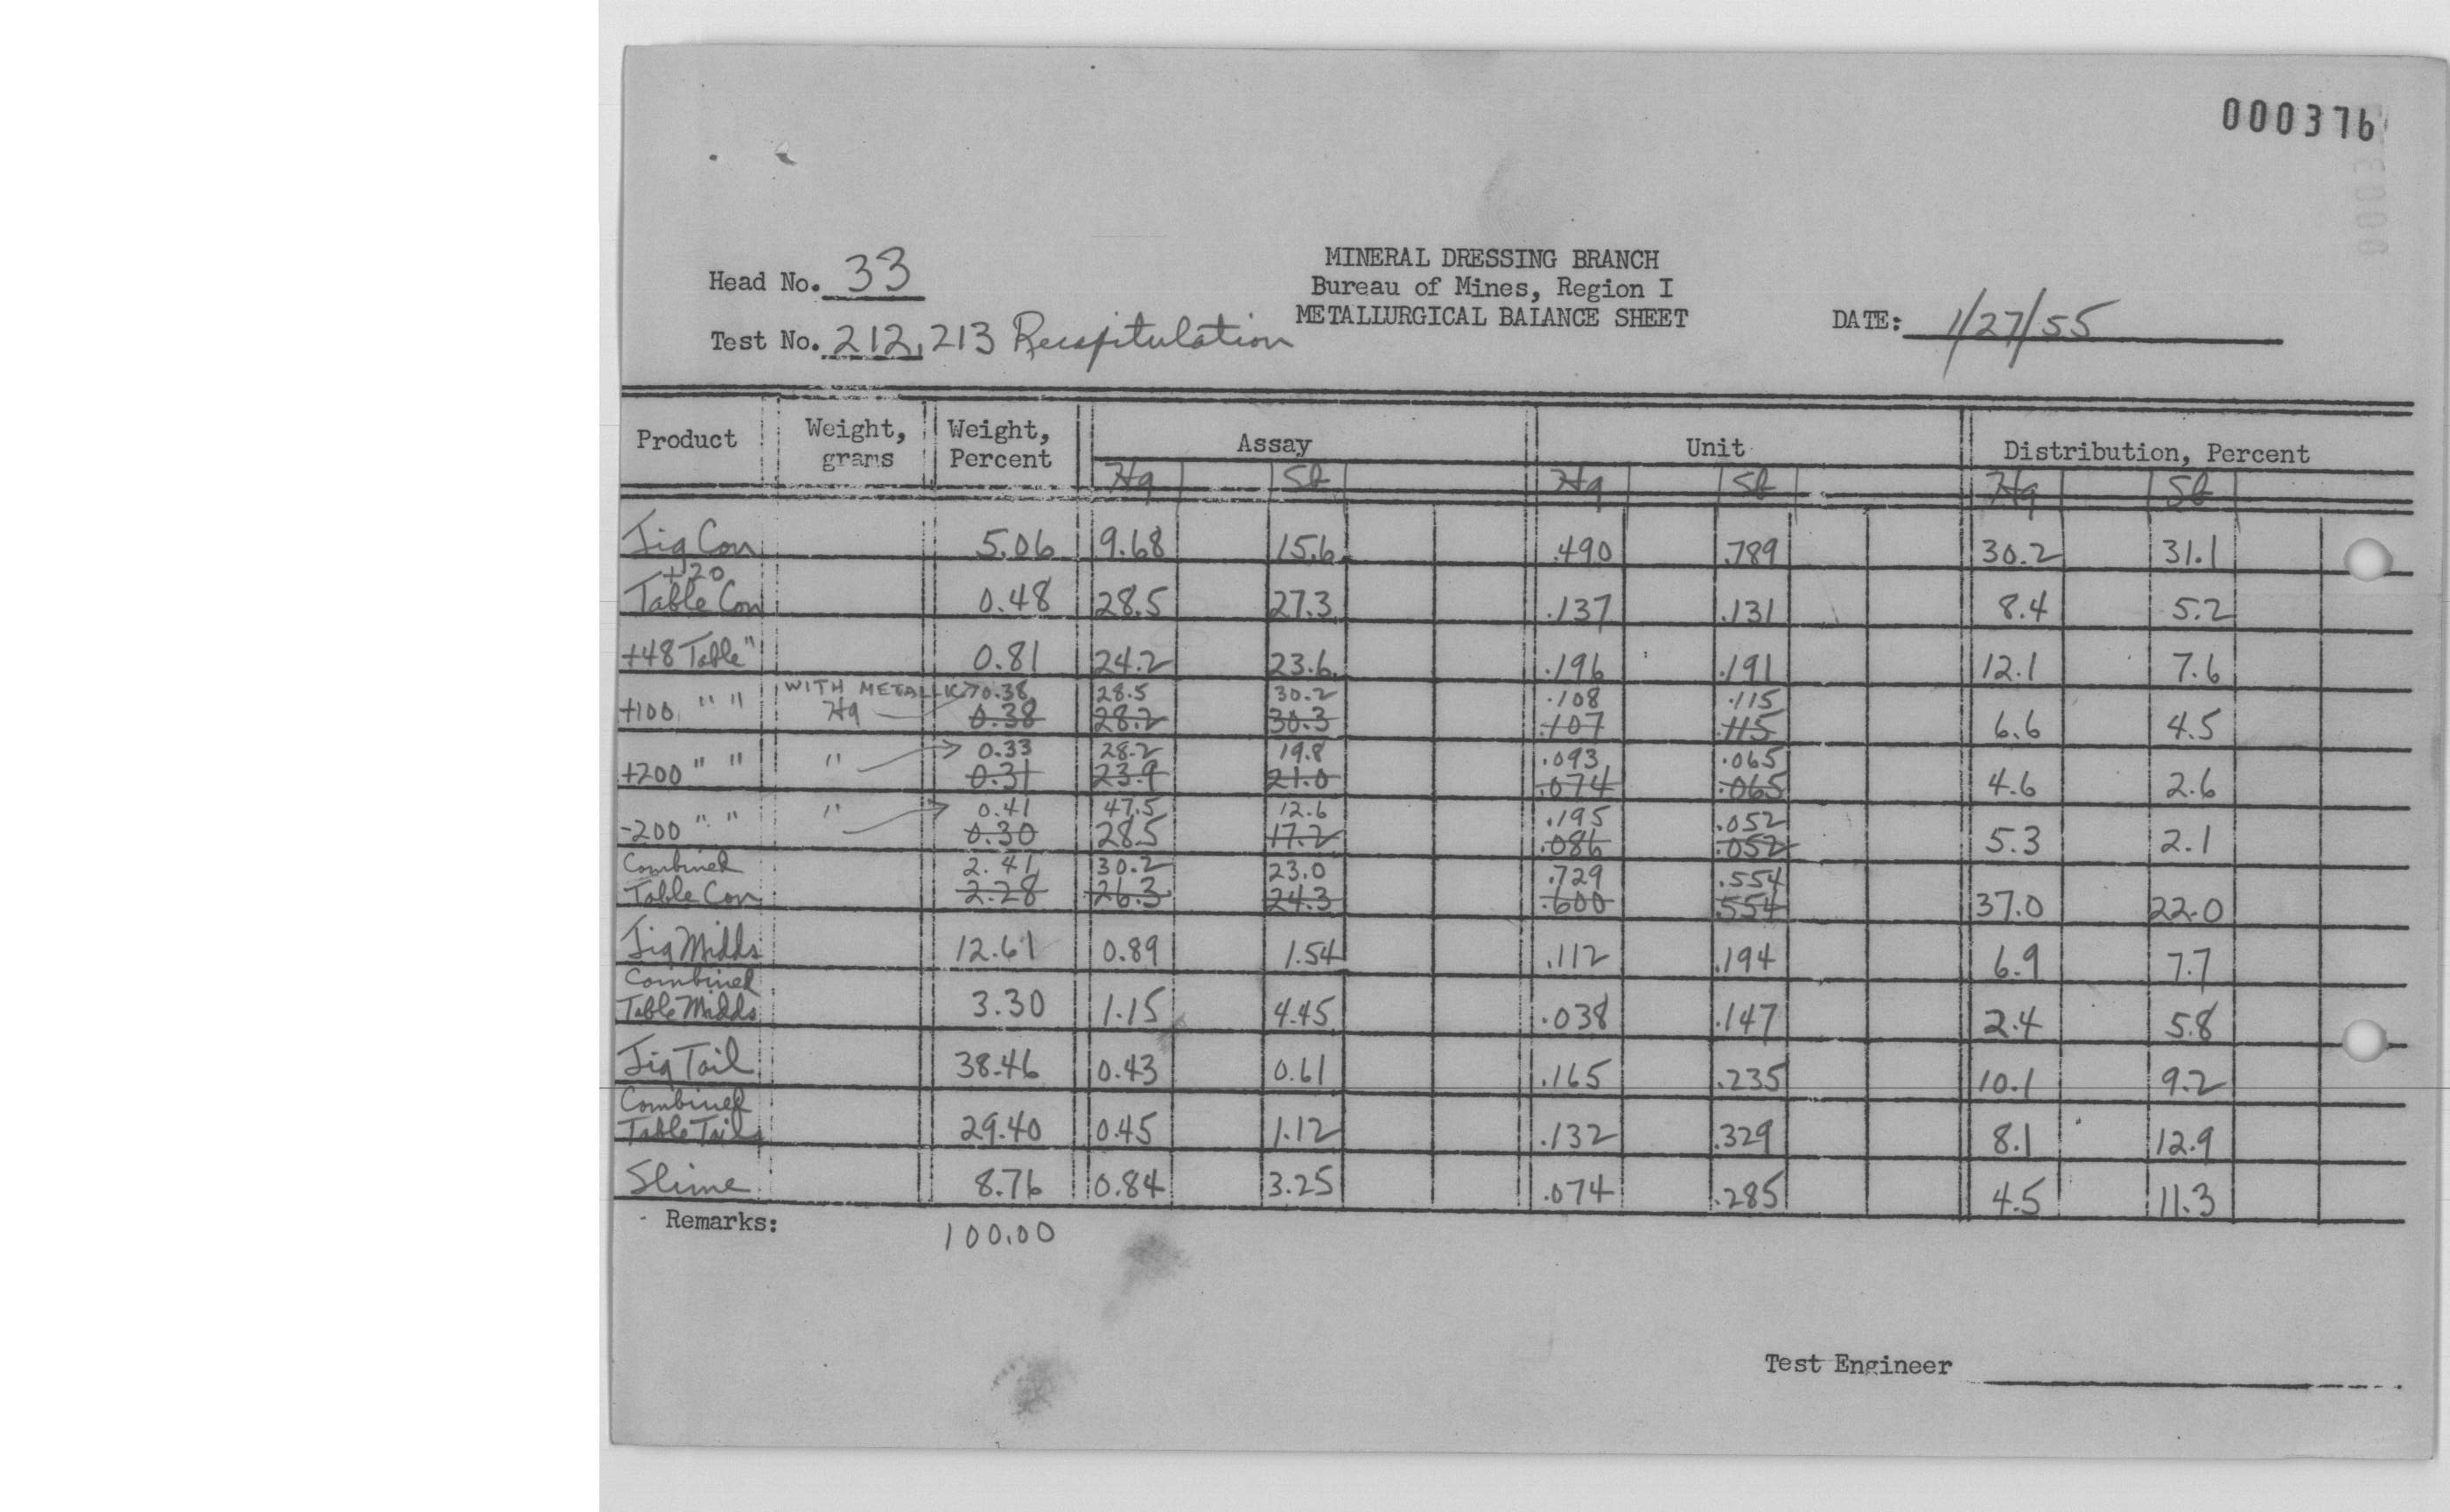 000376
MINERAL DRESSING BRANCH
Head No. 33
Bureau of Mines, Region I
METALLURGICAL BALANCE SHEET
DATE: 1/27/55
Test No. 212, 213 Recapitulation
Product Weight, grams Weight, Percent Assay Unit Distribution, Percent
Hg Sb Hg Sb Hg Sb
Jig Con 5.06 9.68 15.6 .490 .789 30.2 31.1
+20
Table Con 0.48 28.5 27.3 .137 .131 8.4 5.2
+48 Table " 0.81 24.2 23.6 .196 .191 12.1 7.6
WITH METALLIC 0.38 28.5 30.2 .108 .115
+100 " " Hg 0.38 28.2 30.3 .107 .115 6.6 4.5
0.33 28.2 19.8 .093 .065
+200 " " " 0.31 23.9 21.0 .074 .065 4.6 2.6
0.41 47.5 12.6 .195 .052
-200 " " " 0.30 28.5 17.2 .086 .052 5.3 2.1
Combined 2.41 30.2 23.0 .729 .554
Table Con 2.28 26.3 24.3 .600 .554 37.0 22.0
Jig Midds 12.61 0.89 1.54 .112 .194 6.9 7.7
Combined
Table Midds 3.30 1.15 4.45 .038 .147 2.4 5.8
Jig Tail 38.46 0.43 0.61 .165 .235 10.1 9.2
Combined
Table Tails 29.40 0.45 1.12 .132 .329 8.1 12.9
Slime 8.76 0.84 3.25 .074 .285 4.5 11.3
Remarks: 100.00
Test Engineer